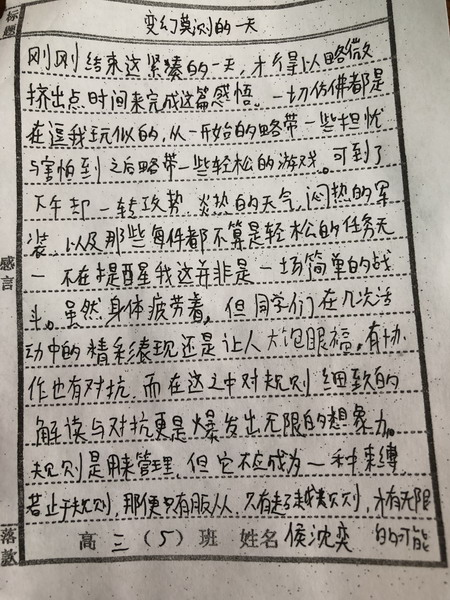 标题
变幻莫测的一天
刚刚结束这紧凑的一天，才得以略微
挤出点时间来完成这篇感悟。一切仿佛都是
在逗我玩似的，从一开始的略带一些担忧
与害怕到之后略带一些轻松的游戏。可到了
下午却一转攻势，炎热的天气，闷热的军
装，以及那些每件都不算是轻松的任务无
一不在提醒我这并非是一场简单的战
斗。虽然身体疲劳着，但同学们在几次活
动中的精彩表现还是让人大饱眼福。有协
作也有对抗，而在这之中对规则细致的
解读与对抗更是爆发出无限的想象力。
规则是用来管理，但它不应成为一种束缚，
若止于规则，那便只有服从，只有规则，才有无限
感言
落款
高三（5）班 姓名 侯沈奕 的可能